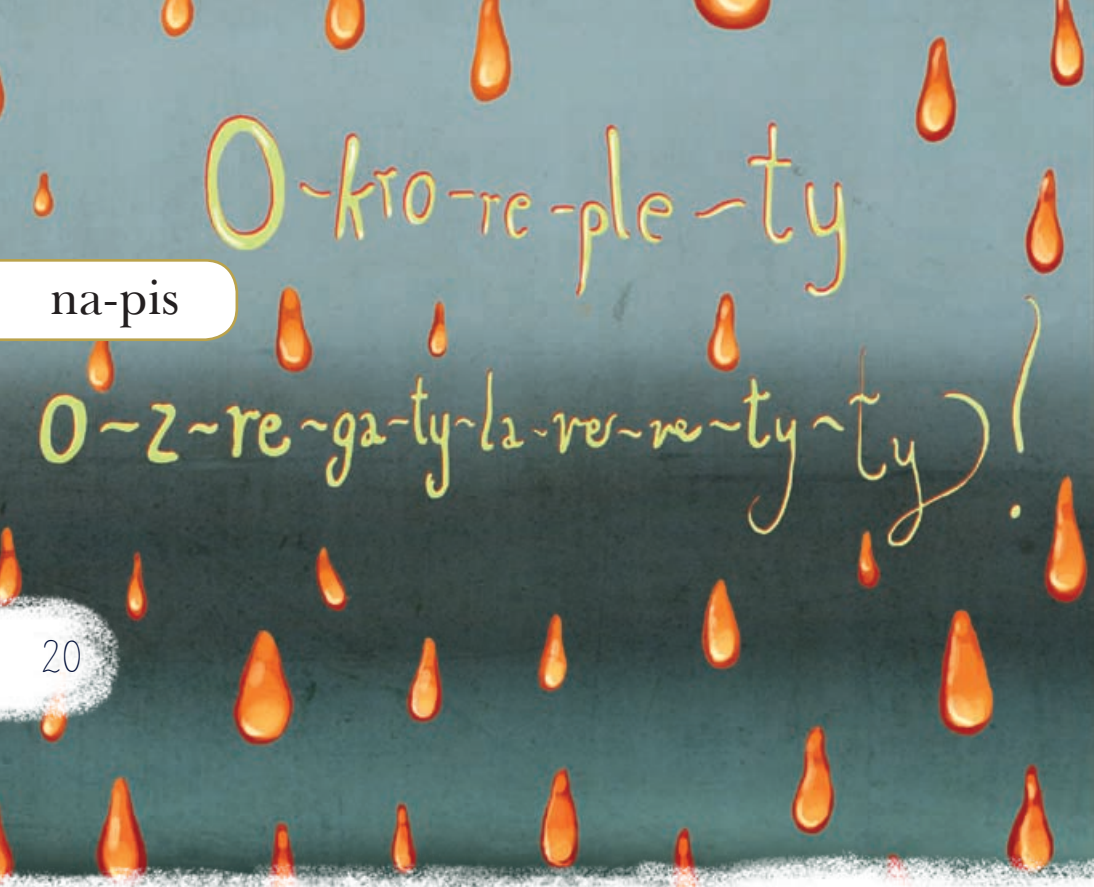 O-kro-re-ple-ty
na-pis
o-z-re-ga-ty-la-ver-ve-ty-ty!
20